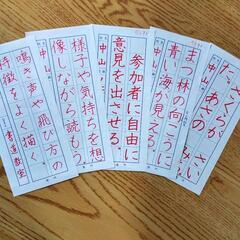 さくらが
さい
た。
あさの
まつ林の向こうに
青い海が見える。
中山
参加者に自由に
意見を出させる。
中山
様子や気持ちを想
像しながら読もう。
中山
鳴き声や飛び方の
特徴をよく描く
書道教室